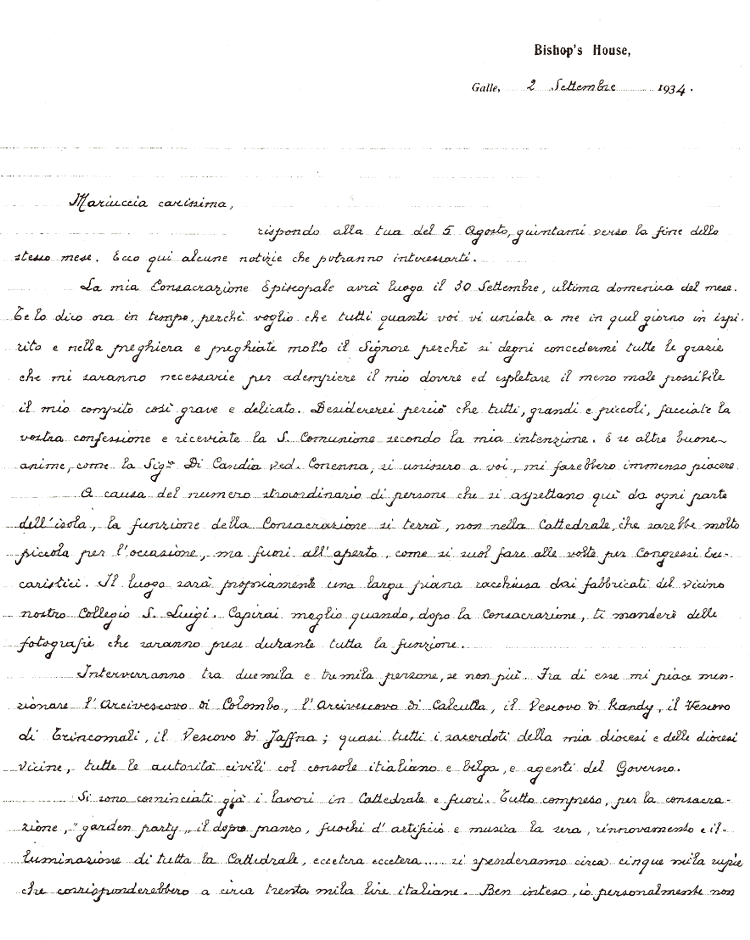 Bishop's House,
Galle, 2 Settembre 1934.
Mariuccia carissima,
rispondo alla tua del 5 Agosto, quintami verso la fine dello
stesso mese. Ecco qui alcune notizie che potranno interessarti.
La mia Consacrazione Episcopale avrà luogo il 30 Settembre, ultima domenica del mese.
Te lo dico ora in tempo, perchè voglio che tutti quanti voi vi uniate a me in quel giorno in ispi-
rito e nella preghiera e preghiate molto il Signore perchè si degni concedermi tutte le grazie
che mi saranno necessarie per adempiere il mio dovere ed espletare il meno male possibile
il mio compito così grave e delicato. Desidererei perciò che tutti, grandi e piccoli, facciate la
vostra confessione e riceviate la S. Comunione secondo la mia intenzione. E se altre buone
anime, come la Sigra Di Candia ved. Conenna, si unissero a voi, mi farebbero immenso piacere.
A causa del numero straordinario di persone che si aspettano quì da ogni parte
dell'isola, la funzione della Consacrazione si terrà, non nella Cattedrale, che sarebbe molto
piccola per l'occasione, ma fuori all'aperto, come si suol fare alle volte per Congressi Eu-
caristici. Il luogo sarà propriamente una larga piana racchiusa dai fabbricati del vicino
nostro Collegio S. Luigi. Capirai meglio quando, dopo la Consacrazione, ti manderò delle
fotografie che saranno prese durante tutta la funzione.
Interverranno tra duemila e tremila persone, se non più. Fra di esse mi piace men-
zionare l'Arcivescovo di Colombo, l'Arcivescovo di Calcutta, il Vescovo di Kandy, il Vescovo
di Trincomali, il Vescovo di Jaffna; quasi tutti i sacerdoti della mia diocesi e delle diocesi
vicine, tutte le autorità civili col console italiano e belga, e agenti del Governo.
Si sono cominciati già i lavori in Cattedrale e fuori. Tutto compreso, per la consacra-
zione, "garden party" il dopo pranzo, fuochi d'artificio e musica la sera, rinnovamento e il-
luminazione di tutta la Cattedrale, eccetera eccetera.... si spenderanno circa cinque mila rupie
che corrisponderebbero a circa trenta mila lire italiane. Ben inteso, io personalmente non